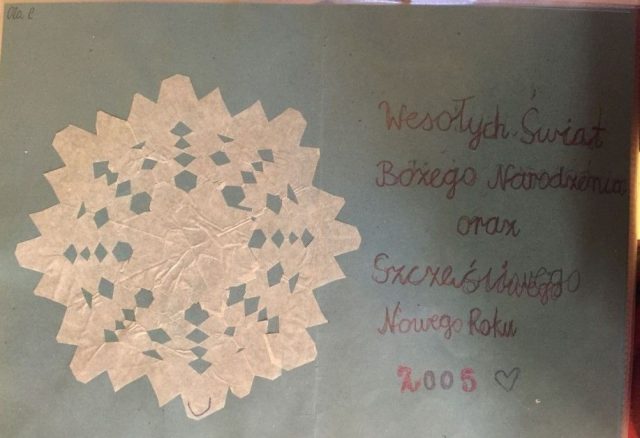 Ola R
Wesołych Świąt
Bożego Narodzenia
oraz
Szczęśliwego
Nowego Roku
2005 ♡